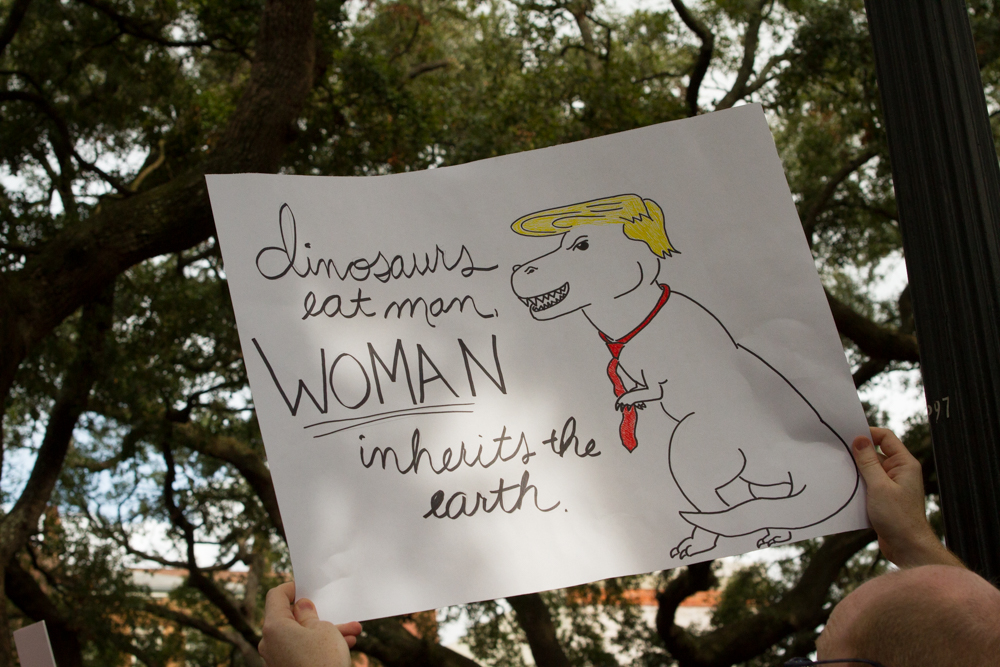 dinosaurs
eat man,
WOMAN
inherits the
earth.